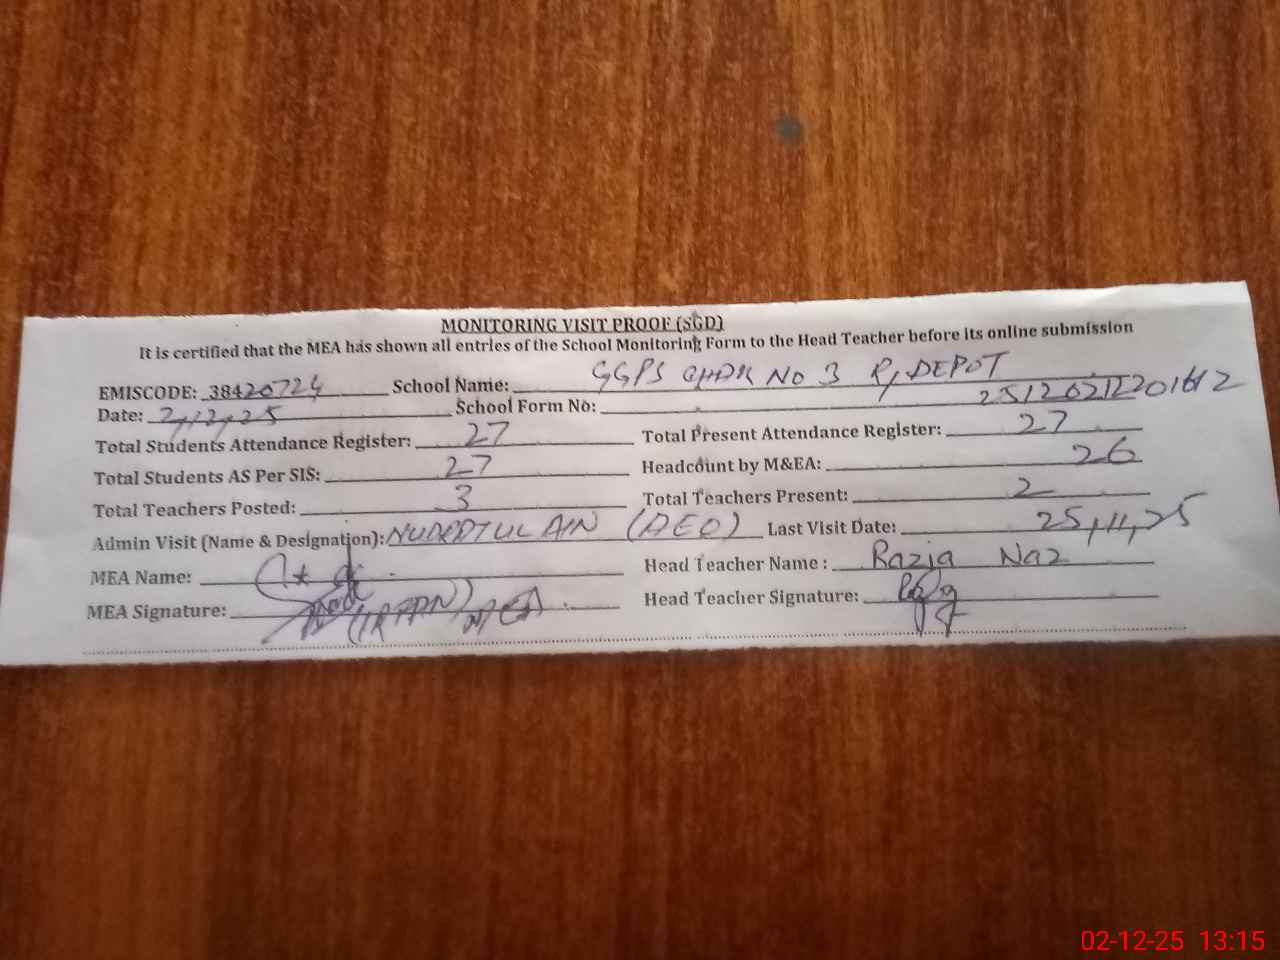 MONITORING VISIT PROOF (SGD)
It is certified that the MEA has shown all entries of the School Monitoring Form to the Head Teacher before its online submission
EMISCODE: 38420724 School Name: GGPS CHAK No 3 R, DEPOT
Date: 2,12,25 School Form No:
Total Students Attendance Register: 27 Total Present Attendance Register: 27
Total Students AS Per SIS: 27 Headcount by M&EA: 26
Total Teachers Posted: 3 Total Teachers Present: 2
Admin Visit (Name & Designation): (AEO) Last Visit Date: 25,11,25
MEA Name: Head Teacher Name : Razia Naz
MEA Signature: (IRFAN) MEA Head Teacher Signature:
02-12-25 13:15